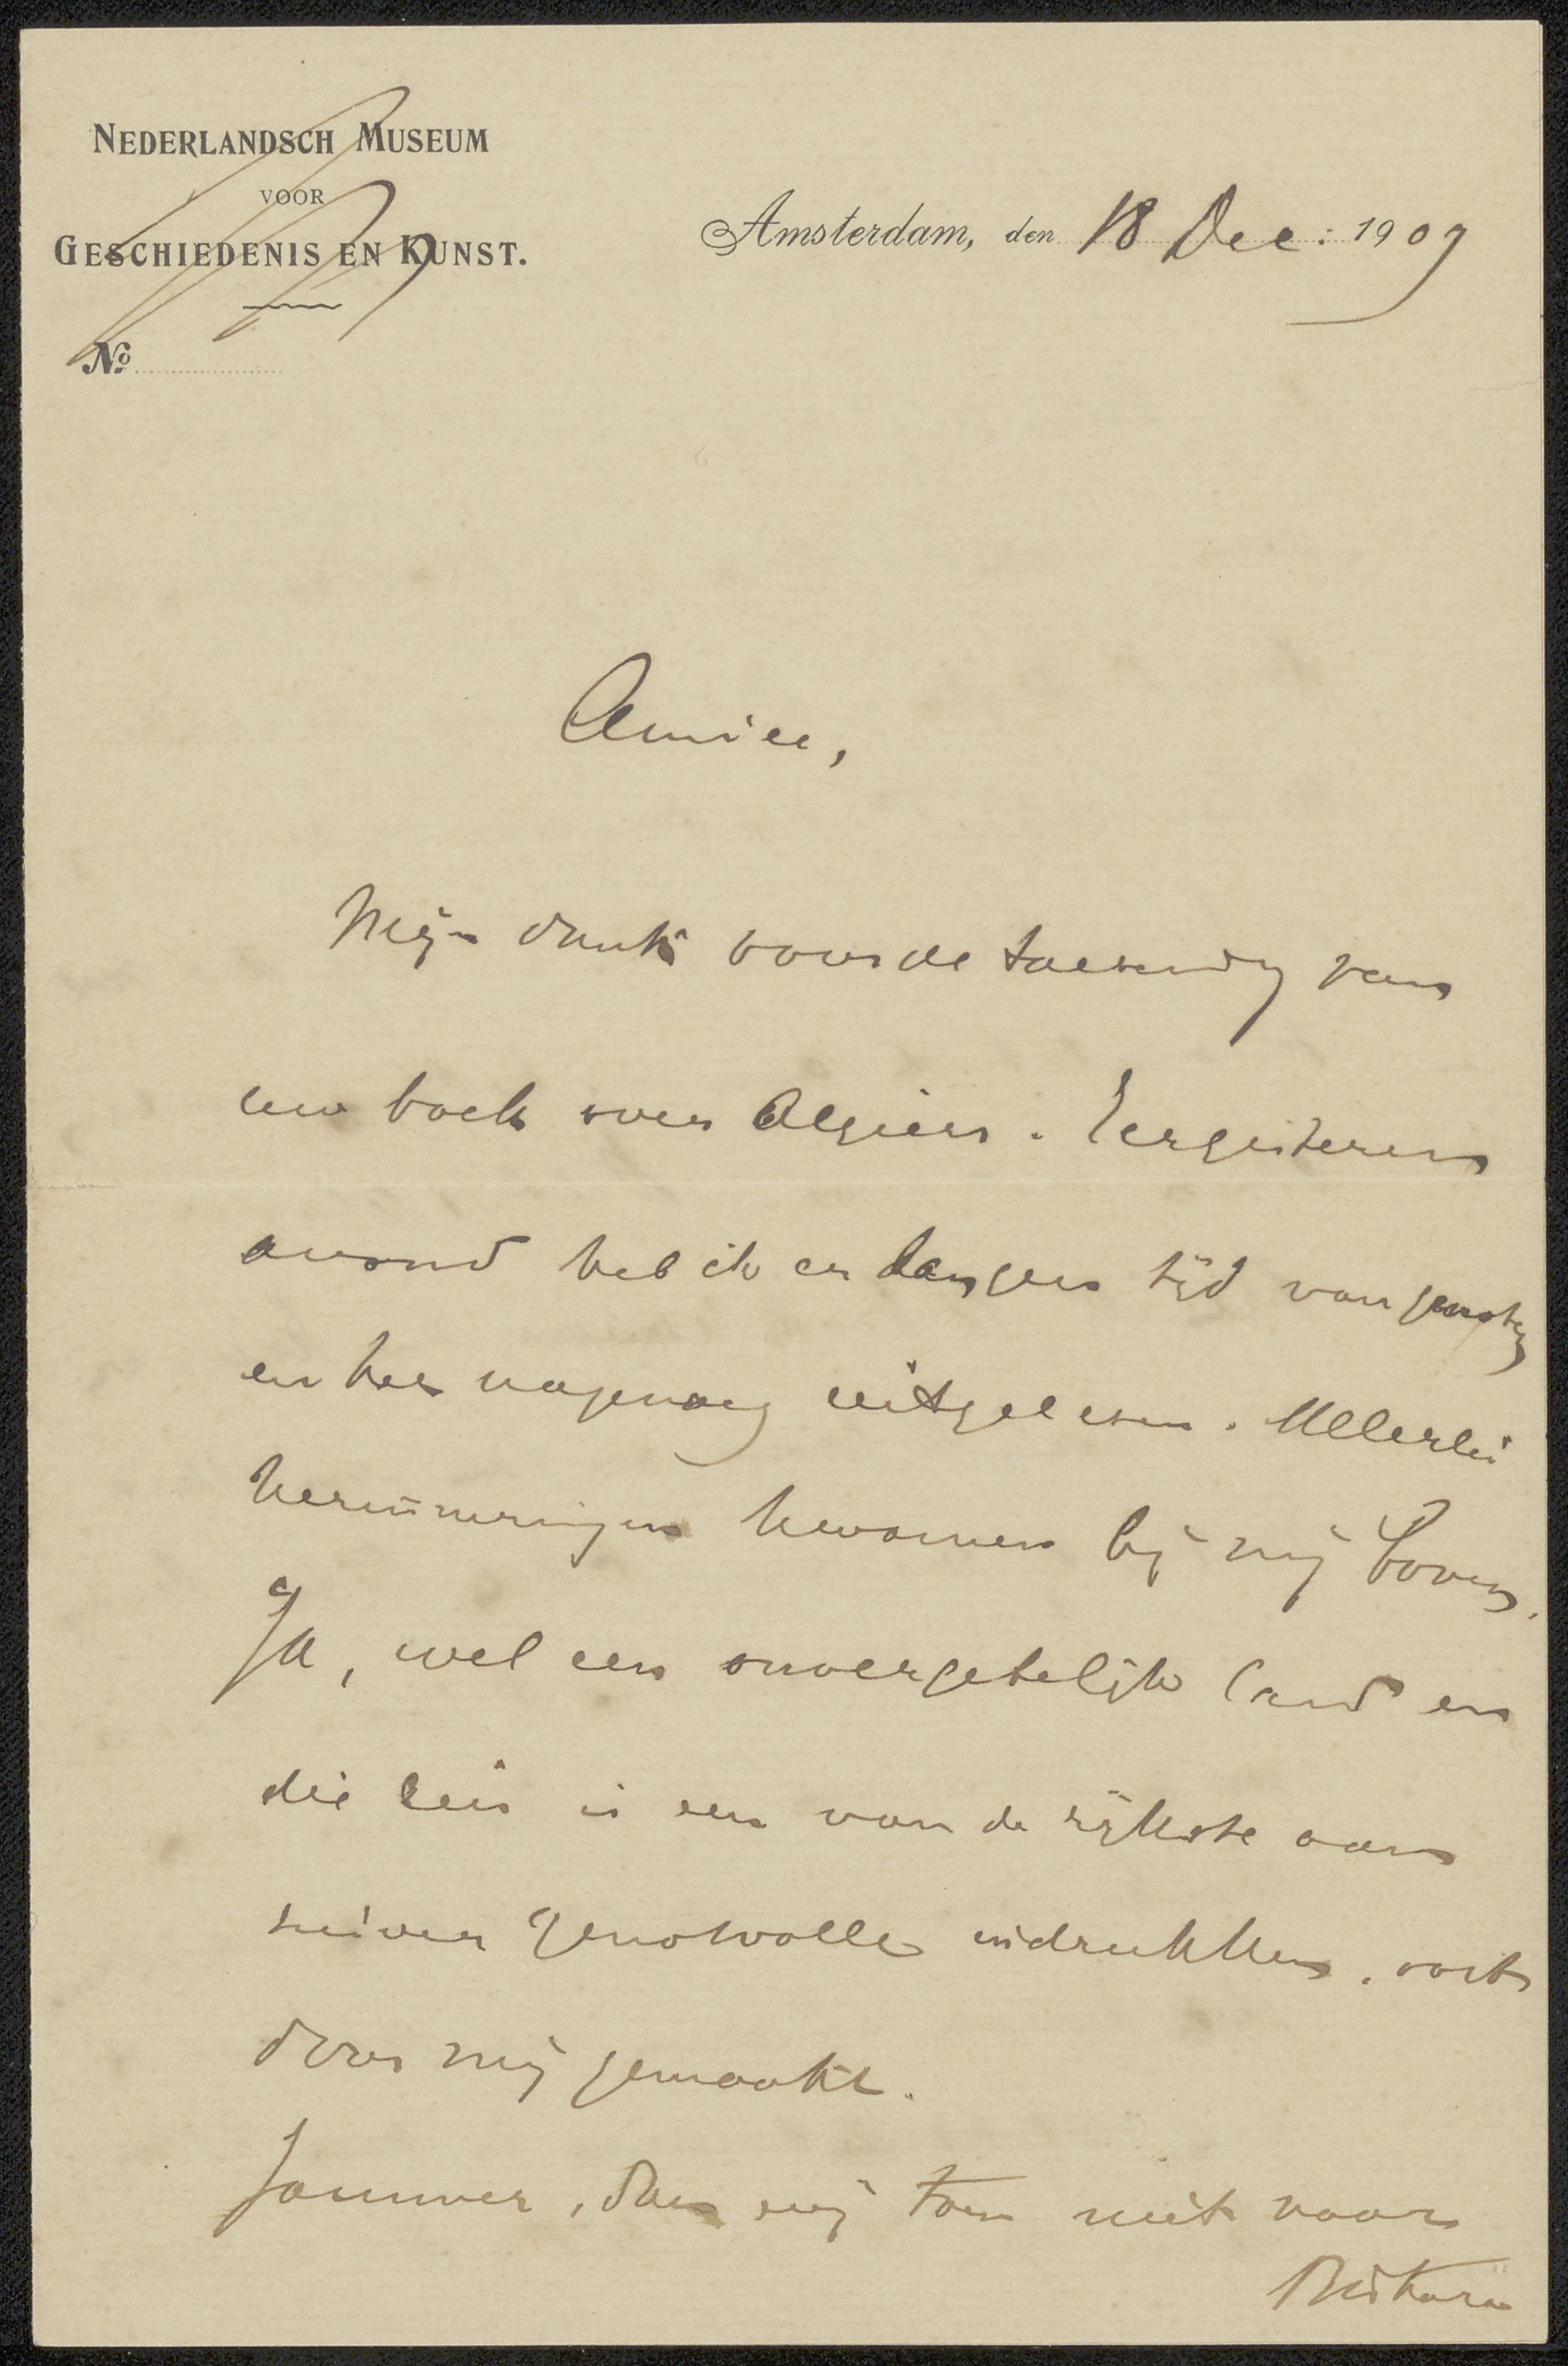 NEDERLANDSCH MUSEUM
VOOR
GESCHIEDENIS EN KUNST.
Amsterdam, den 18 Dec: 1909
No
Amice,
Mijn dank voor de toezending van
uw boek over Algiers. Eergisteren
avond heb ik er langen tijd van genoten
en het nagenoeg uitgelezen. Allerlei
herinneringen kwamen bij mij boven.
Ja, wel een onvergetelijk land en
die reis is een van de rijkste aan
zuiver genotvolle indrukken, ooit
door mij gemaakt.
Jammer, dat wij toen niet naar
Biskara